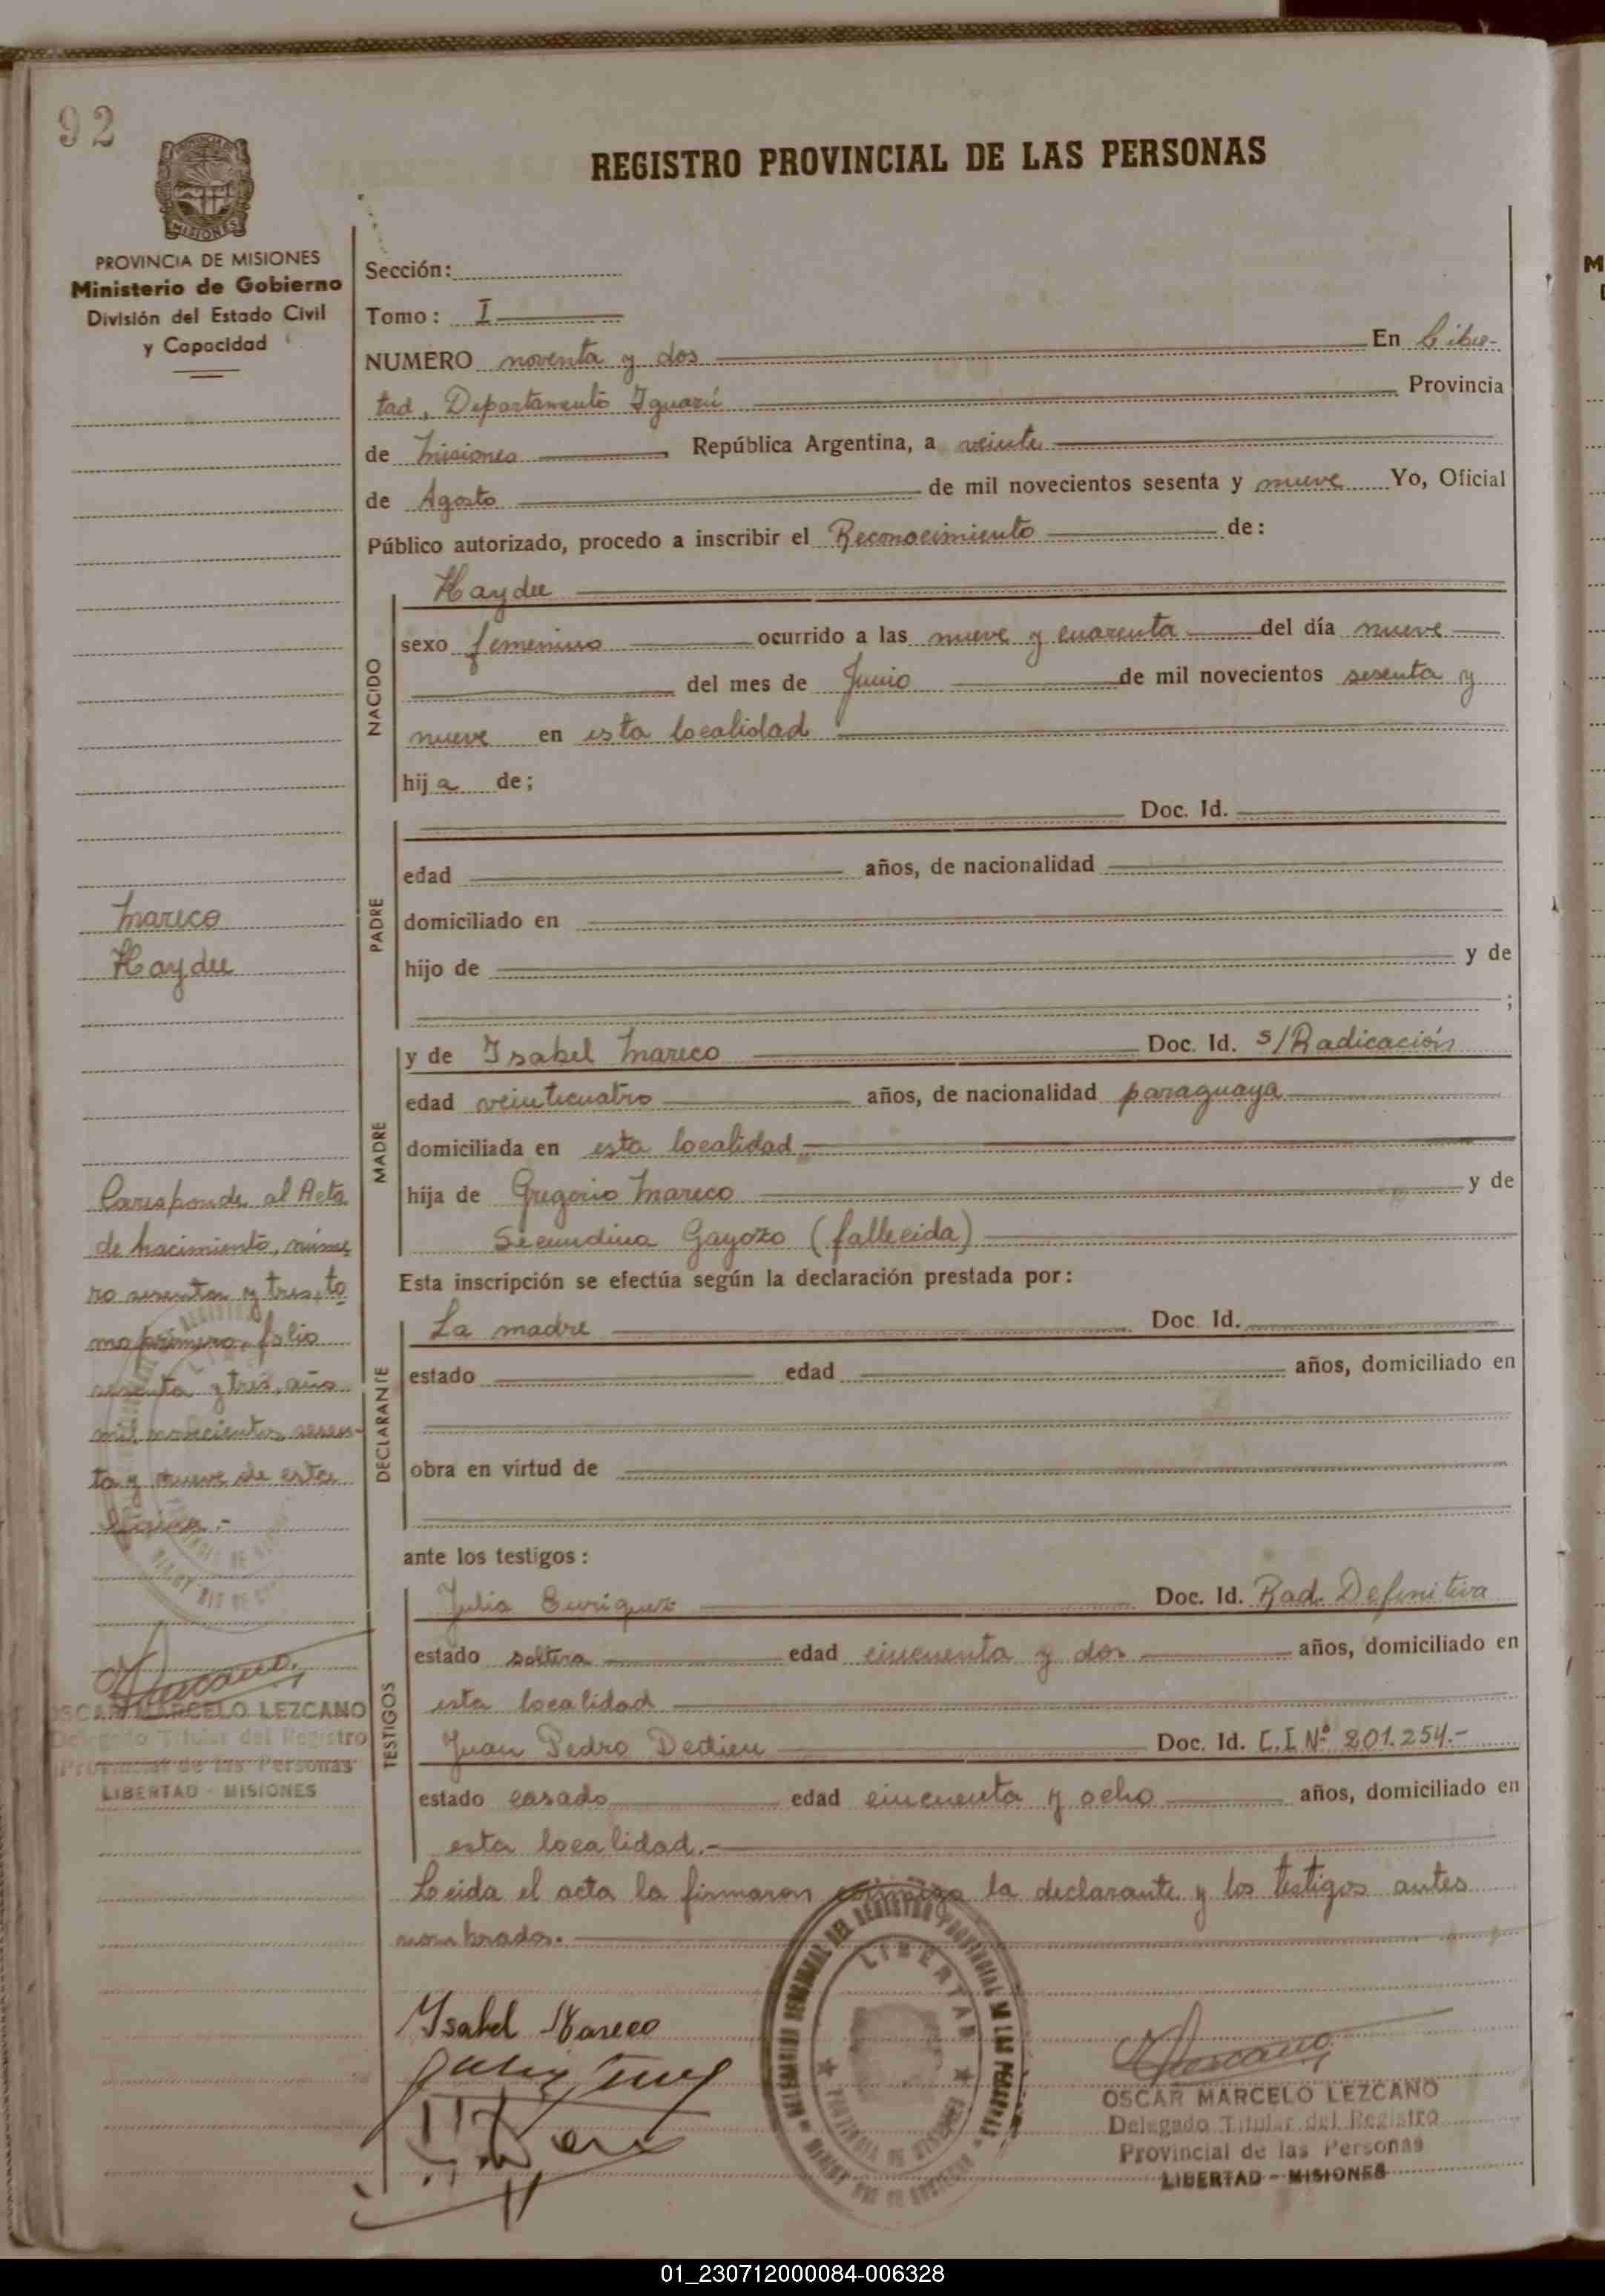 92
REGISTRO PROVINCIAL DE LAS PERSONAS
MISIONES
PROVINCIA DE MISIONES
Ministerio de Gobierno
División del Estado Civil
y Capacidad
Sección:
Tomo: I
NUMERO noventa y dos En Liber-
tad, Departamento Iguazú Provincia
de Misiones República Argentina, a veinte
de Agosto de mil novecientos sesenta y nueve Yo, Oficial
Público autorizado, procedo a inscribir el Reconocimiento de:
NACIDO
Haydee
sexo femenino ocurrido a las nueve y cuarenta del día nueve
del mes de Junio de mil novecientos sesenta y
nueve en esta localidad
hija de;
PADRE
Doc. Id.
edad años, de nacionalidad
domiciliado en
hijo de y de
;
Mareco
Haydee
MADRE
y de Isabel Mareco Doc. Id. s/Radicación
edad veinticuatro años, de nacionalidad paraguaya
domiciliada en esta localidad
hija de Gregorio Mareco y de
Secundina Gayozo (fallecida)
Esta inscripción se efectúa según la declaración prestada por:
Corresponde al Acta
de nacimiento, núme
ro sesenta y tres, to
mo primero, folio
sesenta y tres, año
mil novecientos sesen-
ta y nueve de esta
DECLARANTE
La madre Doc. Id.
estado edad años, domiciliado en
obra en virtud de
ante los testigos:
TESTIGOS
Julia Enriquez Doc. Id. Rad. Definitiva
estado soltera edad cincuenta y dos años, domiciliado en
esta localidad
Juan Pedro Dedieu Doc. Id. C.I Nº 801.254.-
estado casado edad cincuenta y ocho años, domiciliado en
esta localidad.-
Leida el acta la firmaron conmigo la declarante y los testigos antes
nombrados.-
OSCAR MARCELO LEZCANO
Delegado Titular del Registro
Provincial de las Personas
LIBERTAD - MISIONES
Isabel Mareco
LIBERTAD
PROVINCIA DE MISIONES
OSCAR MARCELO LEZCANO
Delegado Titular del Registro
Provincial de las Personas
LIBERTAD - MISIONES
01_230712000084-006328